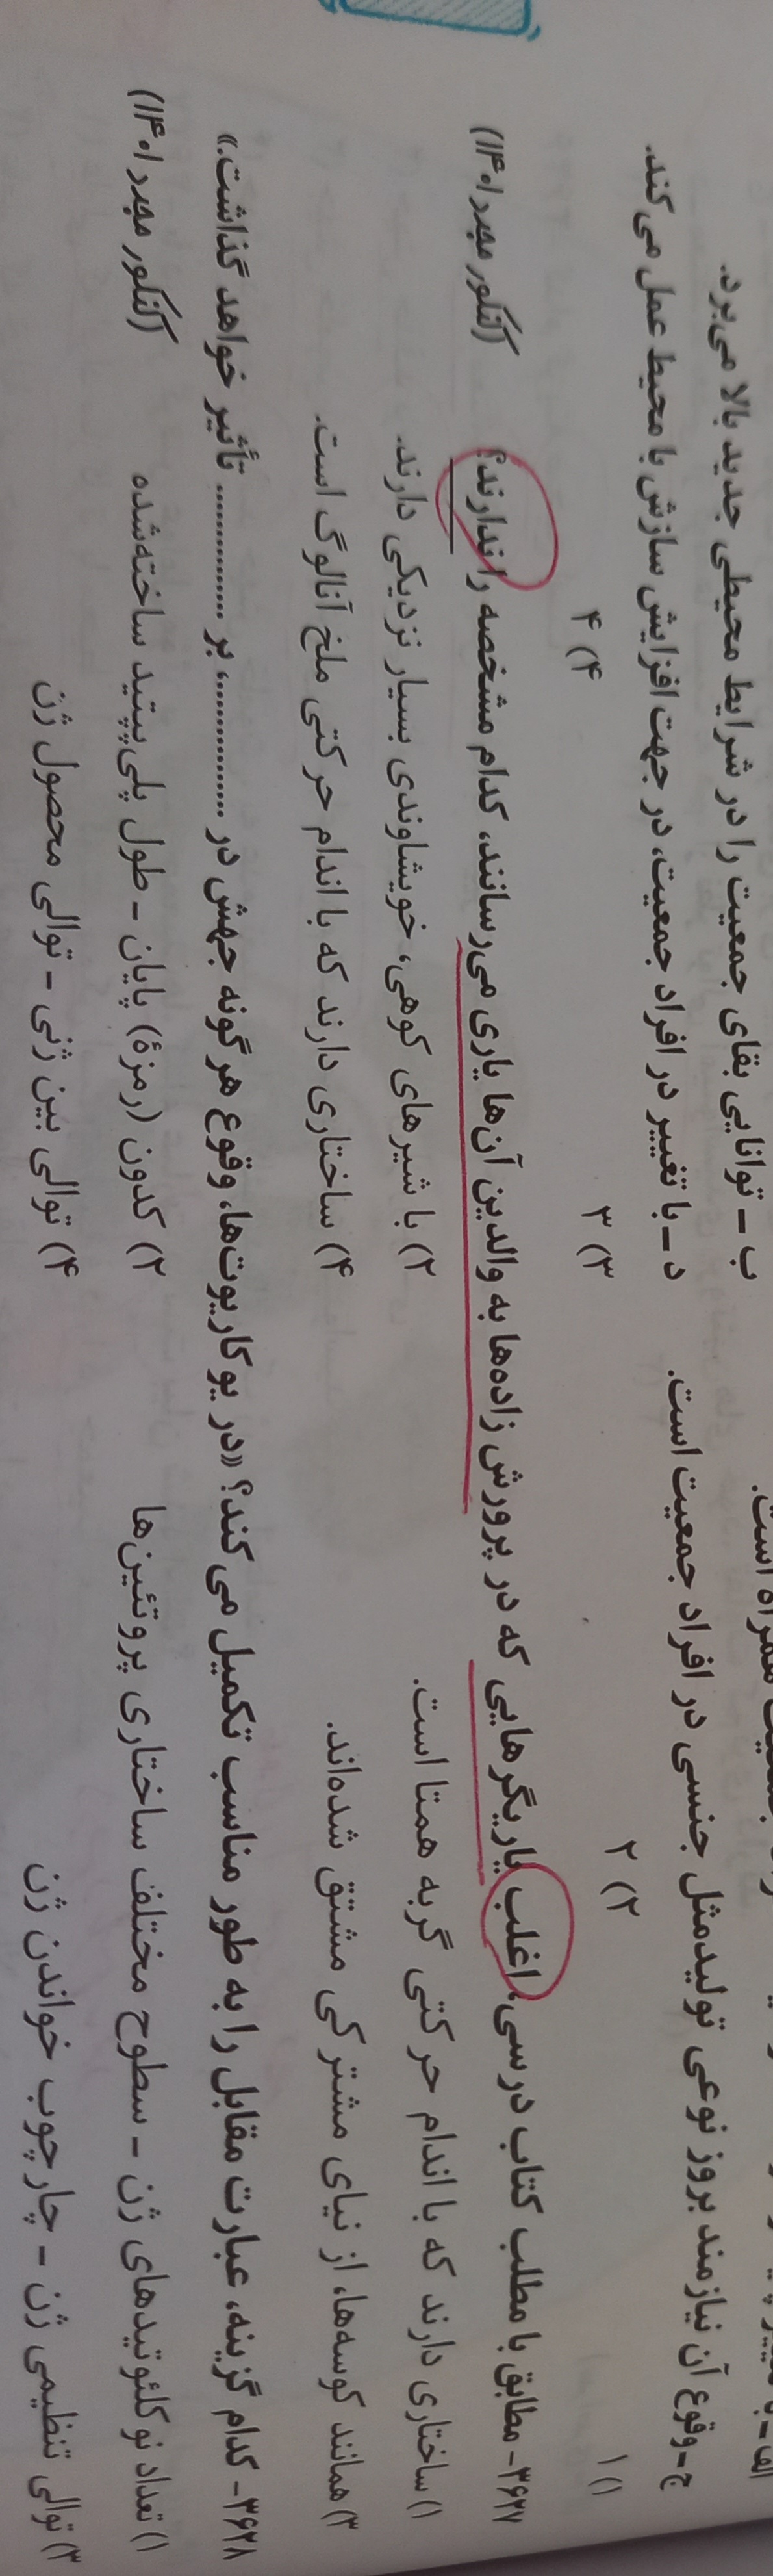 الف -
همراه است.
ب - توانایی بقای جمعیت را در شرایط محیطی جدید بالا می‌برد.
ج - وقوع آن نیازمند بروز نوعی تولیدمثل جنسی در افراد جمعیت است.
د - با تغییر در افراد جمعیت، در جهت افزایش سازش با محیط عمل می‌کند.
۱) ۱ ۲) ۲ ۳) ۳ ۴) ۴
۳۶۲۷- مطابق با مطلب کتاب درسی، اغلب یاریگرهایی که در پرورش زاده‌ها به والدین آن‌ها یاری می‌رسانند، کدام مشخصه را ندارند؟ (کنکور مجدد ۱۴۰۱)
۱) ساختاری دارند که با اندام حرکتی گربه همتا است. ۲) با شیرهای کوهی، خویشاوندی بسیار نزدیکی دارند.
۳) همانند کوسه‌ها، از نیای مشترکی مشتق شده‌اند. ۴) ساختاری دارند که با اندام حرکتی ملخ آنالوگ است.
۳۶۲۸- کدام گزینه، عبارت مقابل را به طور مناسب تکمیل می‌کند؟ «در یوکاریوت‌ها، وقوع هرگونه جهش در ................، بر ................ تأثیر خواهد گذاشت.»
(کنکور مجدد ۱۴۰۱)
۱) تعداد نوکلئوتیدهای ژن - سطوح مختلف ساختاری پروتئین‌ها ۲) کدون (رمزهٔ) پایان - طول پلی‌پپتید ساخته‌شده
۳) توالی تنظیمی ژن - چارچوب خواندن ژن ۴) توالی بین ژنی - توالی محصول ژن